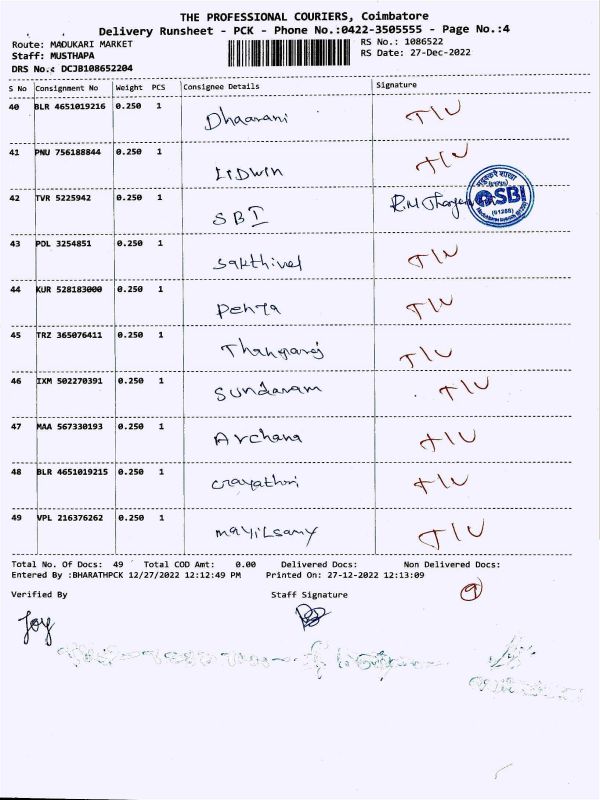 THE PROFESSIONAL COURIERS, Coimbatore
Delivery Runsheet - PCK - Phone No.:0422-3505555 - Page No.:4
Route: MADUKARI MARKET RS No.: 1086522
Staff: MUSTHAPA RS Date: 27-Dec-2022
DRS No.: DCJB108652204
S No Consignment No Weight PCS Consignee Details Signature
40 BLR 4651019216 0.250 1 Dhaarani T/U
41 PNU 756188844 0.250 1 LIDWIN T/U
42 TVR 5225942 0.250 1 SBI
SBI
(01265)
43 POL 3254851 0.250 1 Sakthivel T/U
44 KUR 528183000 0.250 1 T/U
45 TRZ 365076411 0.250 1 Thangaraj T/U
46 IXM 502270391 0.250 1 Sundaram T/U
47 MAA 567330193 0.250 1 Archana T/U
48 BLR 4651019215 0.250 1 Gayathri T/U
49 VPL 216376262 0.250 1 Mayilsamy T/U
Total No. Of Docs: 49 Total COD Amt: 0.00 Delivered Docs: Non Delivered Docs:
Entered By :BHARATHPCK 12/27/2022 12:12:49 PM Printed On: 27-12-2022 12:13:09
9
Verified By Staff Signature
Joy